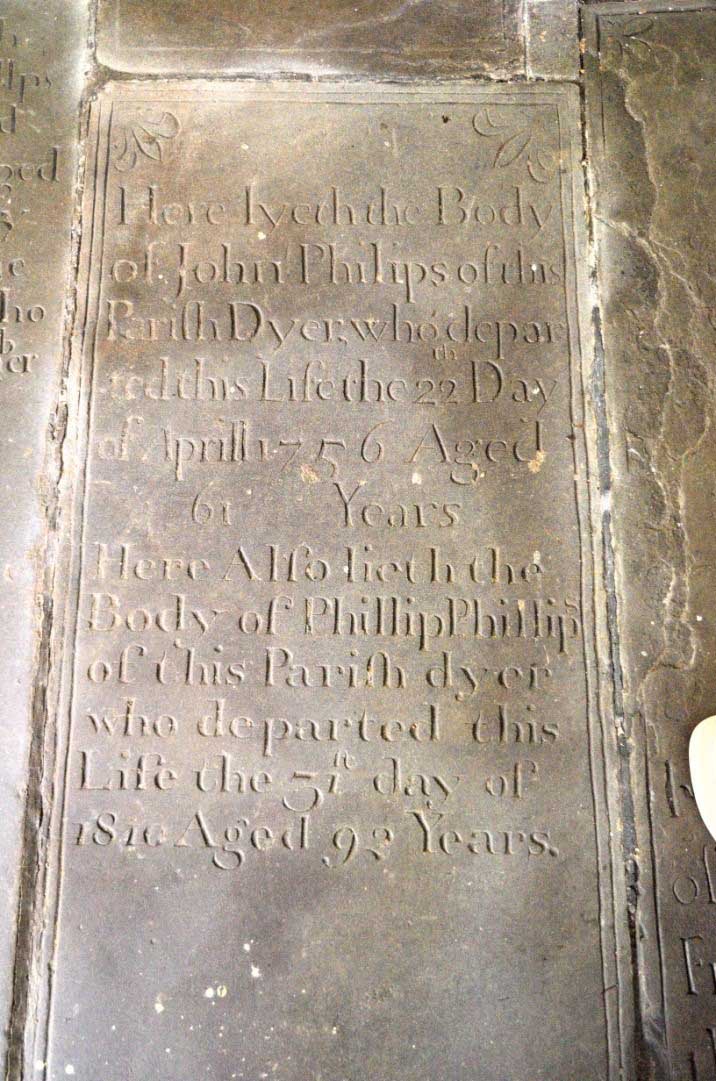 Here lyeth the Body
of John Philips of this
Pariſh Dyer, who depar
ted this Life the 22th Day
of Aprill 1756 Aged
61 Years
Here Alſo lieth the
Body of Phillip Phillips
of this Pariſh dyer
who departed this
Life the 31st day of
1810 Aged 92 Years.